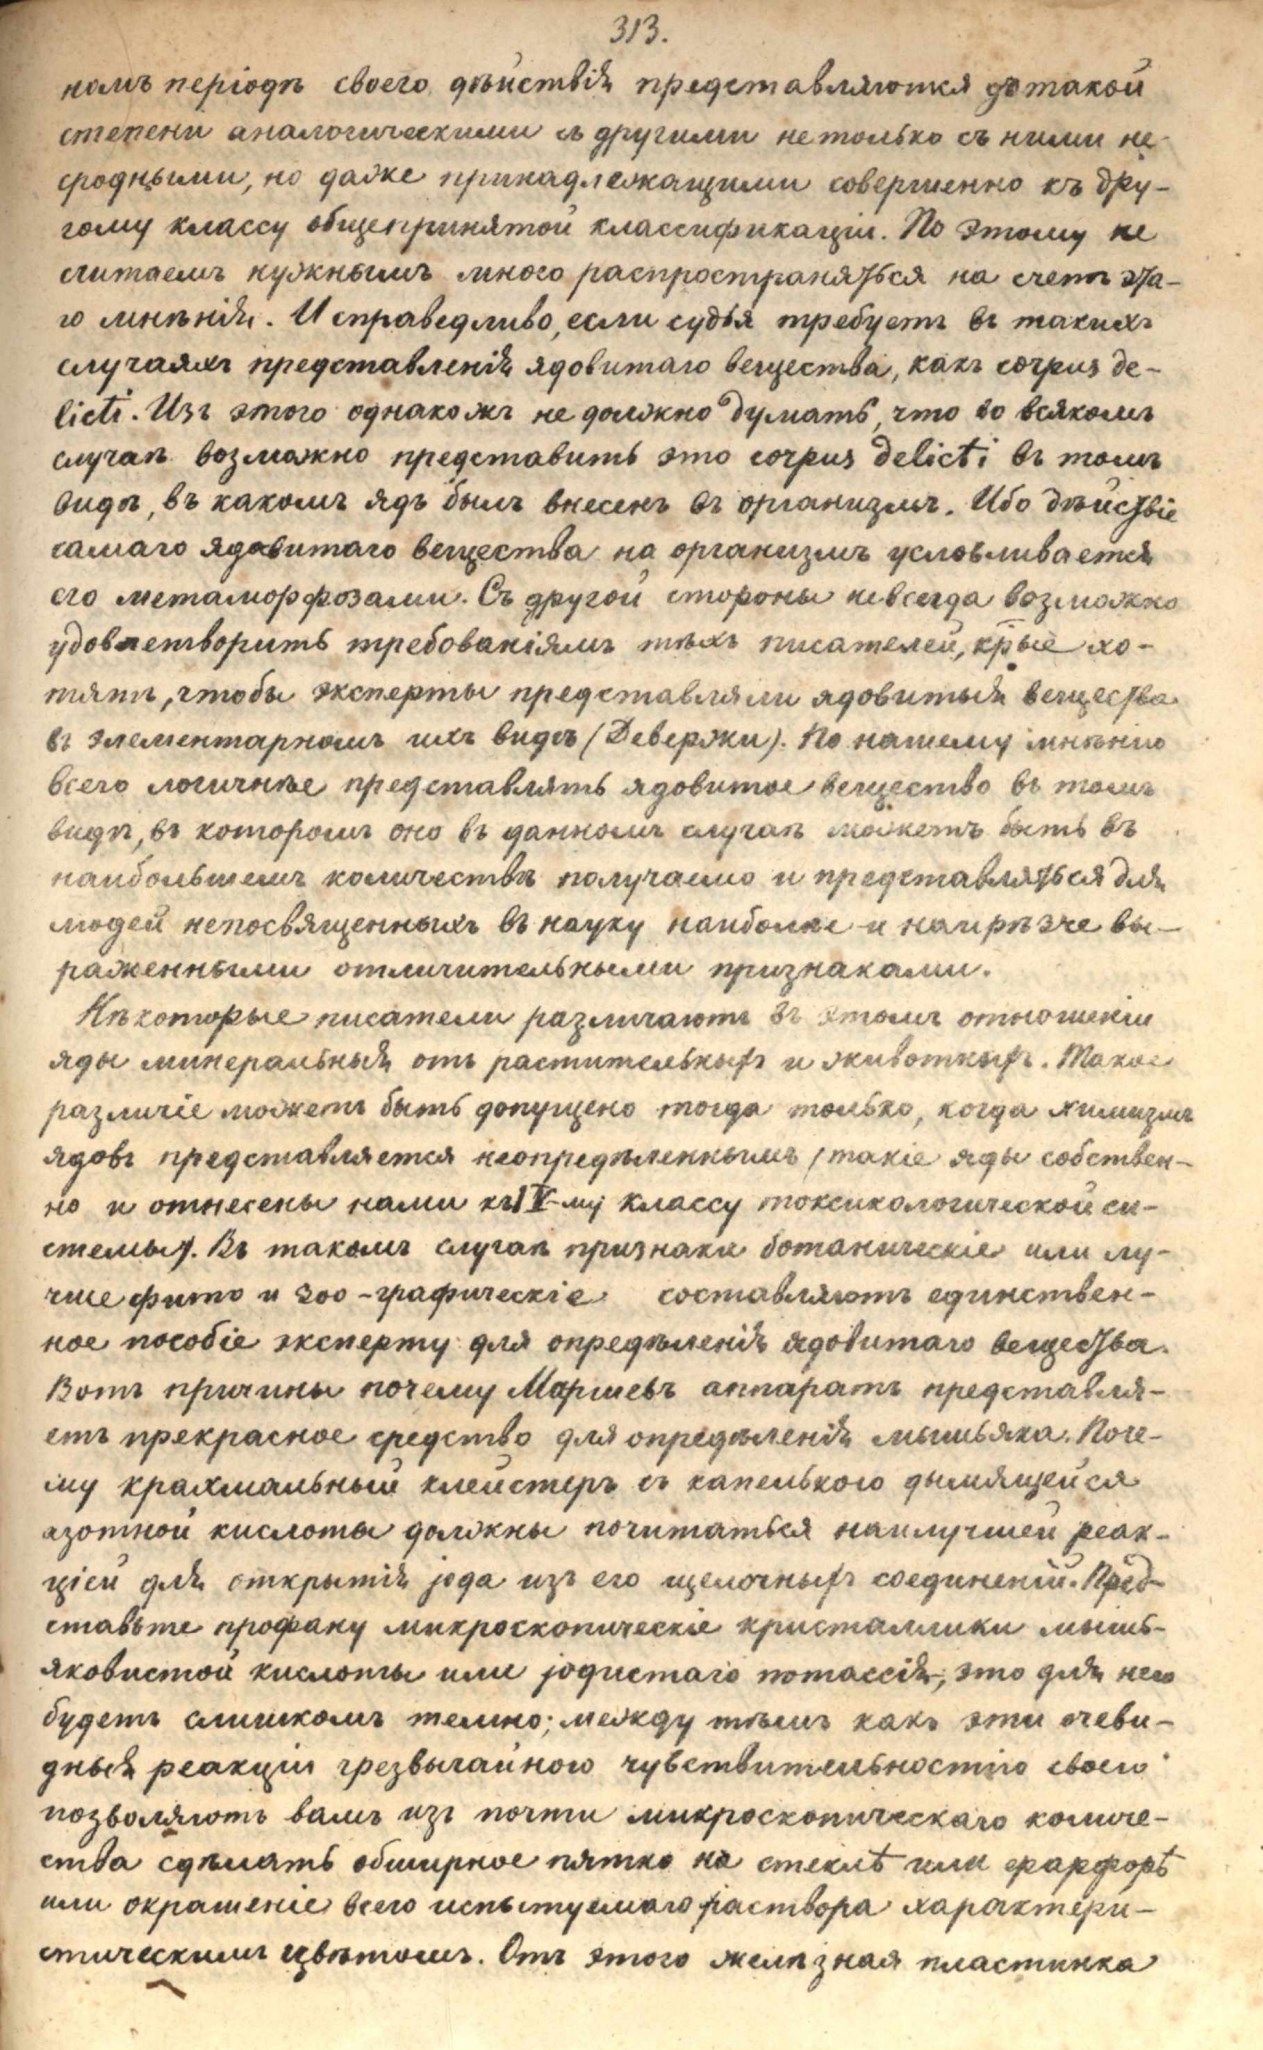 313.
номъ періодѣ своего дѣйствія представляются до такой
степени аналогическими съ другими не только съ ними не-
сродными, но даже принадлежащими совершенно къ дру-
гому классу общепринятой классификаціи. По этому не
считаемъ нужнымъ много распространяться на счетъ эта-
го мнѣнія. И справедливо, если судья требуетъ въ такихъ
случаяхъ представленія ядовитаго вещества, какъ corpus de-
licti. Изъ этого однакожъ не должно думать, что во всякомъ
случаѣ возможно представить это corpus delicti въ томъ
видѣ, въ какомъ ядъ былъ внесенъ въ организмъ. Ибо дѣйствіе
самаго ядовитаго вещества на организмъ условливается
его метаморфозами. Съ другой стороны не всегда возможно
удовлетворить требованіямъ тѣхъ писателей, крые хо-
тятъ, чтобы эксперты представляли ядовитыя вещества
въ элементарномъ ихъ видѣ (Девержи). По нашему мнѣнію
всего логичнѣе представлять ядовитое вещество въ томъ
видѣ, въ которомъ оно въ данномъ случаѣ можетъ быть въ
наибольшемъ количествѣ получаемо и представляться для
людей непосвященныхъ въ науку наиболѣе и наирѣзче вы-
раженными отличительными признаками.
Нѣкоторые писатели различаютъ въ этомъ отношеніи
яды минеральныя отъ растительныхъ и животныхъ. Такое
различіе можетъ быть допущено тогда только, когда химизмъ
ядовъ представляется неопредѣленнымъ (такіе яды собствен-
но и отнесены нами къ IV-му классу токсикологической си-
стемы). Въ такомъ случаѣ признаки ботаническіе или лу-
чше фито и зоо-графическіе составляютъ единствен-
ное пособіе эксперту для опредѣленія ядовитаго вещества.
Вотъ причины почему Маршевъ аппаратъ представля-
етъ прекрасное средство для опредѣленія мышьяка. Поче-
му крахмальный клейстеръ съ капелькою дымящейся
азотной кислоты должны почитаться наилучшей реак-
ціей для открытія іода изъ его щелочныхъ соединеній. Пред-
ставьте профану микроскопическіе кристаллики мышь-
яковистой кислоты или іодистаго потассія, это для него
будетъ слишкомъ темно; между тѣмъ какъ эти очеви-
дныя реакціи чрезвычайною чувствительностію своею
позволяютъ вамъ изъ почти микроскопическаго количе-
ства сдѣлать обширное пятно на стеклѣ или фарфорѣ
или окрашеніе всего испытуемаго раствора характери-
стическимъ цвѣтомъ. Отъ этого желѣзная пластинка